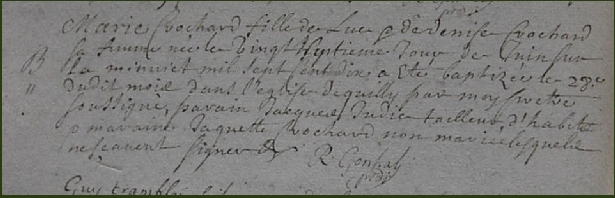 Marie Rochard fille de Luc & de denise Rochard
sa femme nee le vingt huptieme Jour de Juin sur
B la minuict mil sept cent dix a ete baptizee le 29e
dudit mois dans l'eglise de quilly par moy pretre
soussigne, parain Jacques tailleur d'habits
& maraine Jaquette Rochard non mariée lesquels
ne scavent signer
Guy